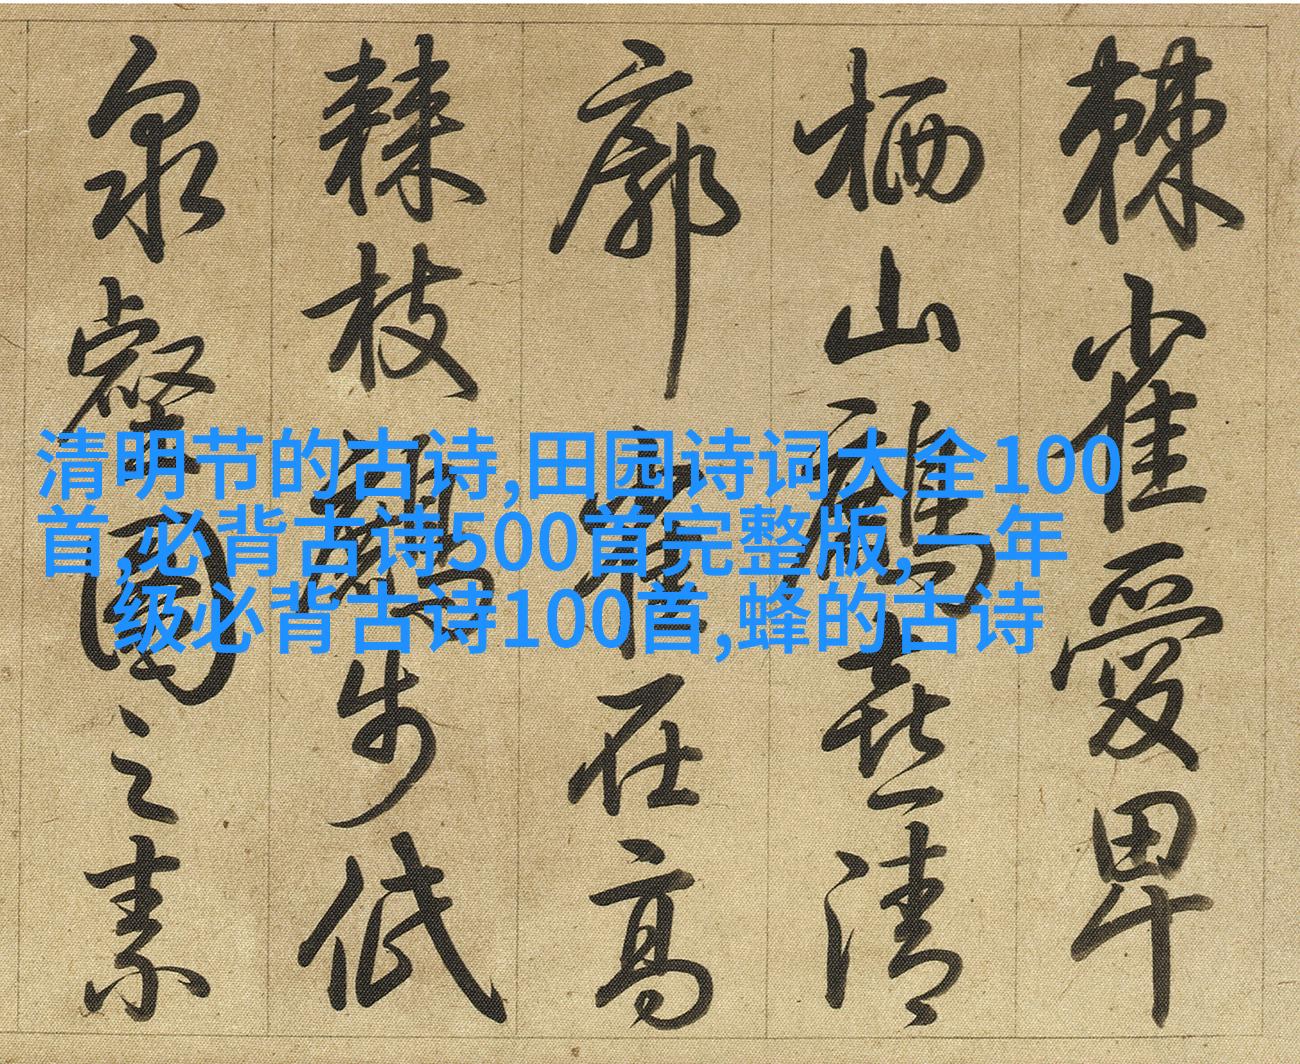 棘雀愛卑
栖山喜清
廓在高
棘枝步低
泉壑之素
清明节的古诗,田园诗词大全100
首,必背古诗500首完整版,一年
级必背古诗100首,蜂的古诗